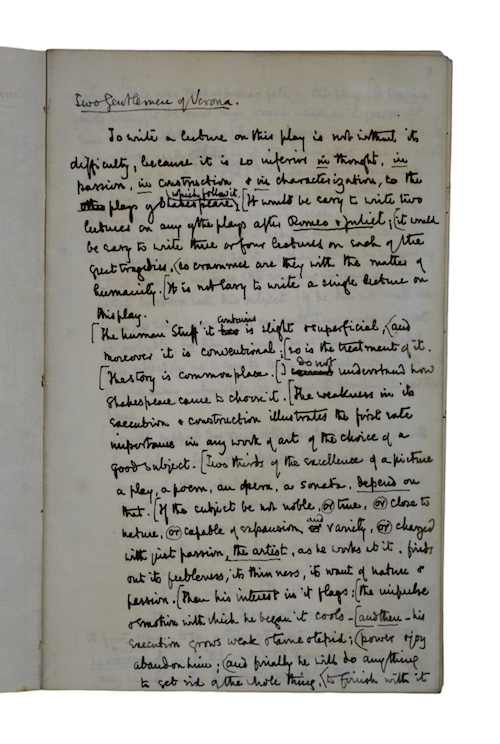 Two Gentlemen of Verona.
To write a lecture on this play is not without its
difficulty, because it is so inferior in thought, in
passion, in construction & in characterization, to the
other plays of Shakespeare, which follow it [It would be easy to write two
lectures on any of the plays after Romeo & Juliet; (it would
be easy to write three or four lectures on each of the
great tragedies, (so crammed are they with the matter of
humanity. [It is not easy to write a single lecture on
this play.
[The human 'stuff' it has contains is slight & superficial, (and
moreover it is conventional; [so is the treatment of it.
[The story is commonplace. [I do not understand how
Shakespeare came to choose it. [The weakness in its
execution & construction illustrates the first rate
importance in any work of art of the choice of a
good subject. [Two thirds of the excellence of a picture
a play, a poem, an opera, a sonata, depend on
that. [If the subject be not noble, or true, or close to
nature, or capable of expansion and variety, or charged
with just passion, the artist, as he works at it, finds
out its feebleness, its thinness, its want of nature &
passion. [Then his interest in it flags; [the impulse
& emotion with which he began it cools - [and then - his
execution grows weak & tame & tepid; (power & joy
abandon him; (and finally he will do anything
to get rid of the whole thing, (to finish with it